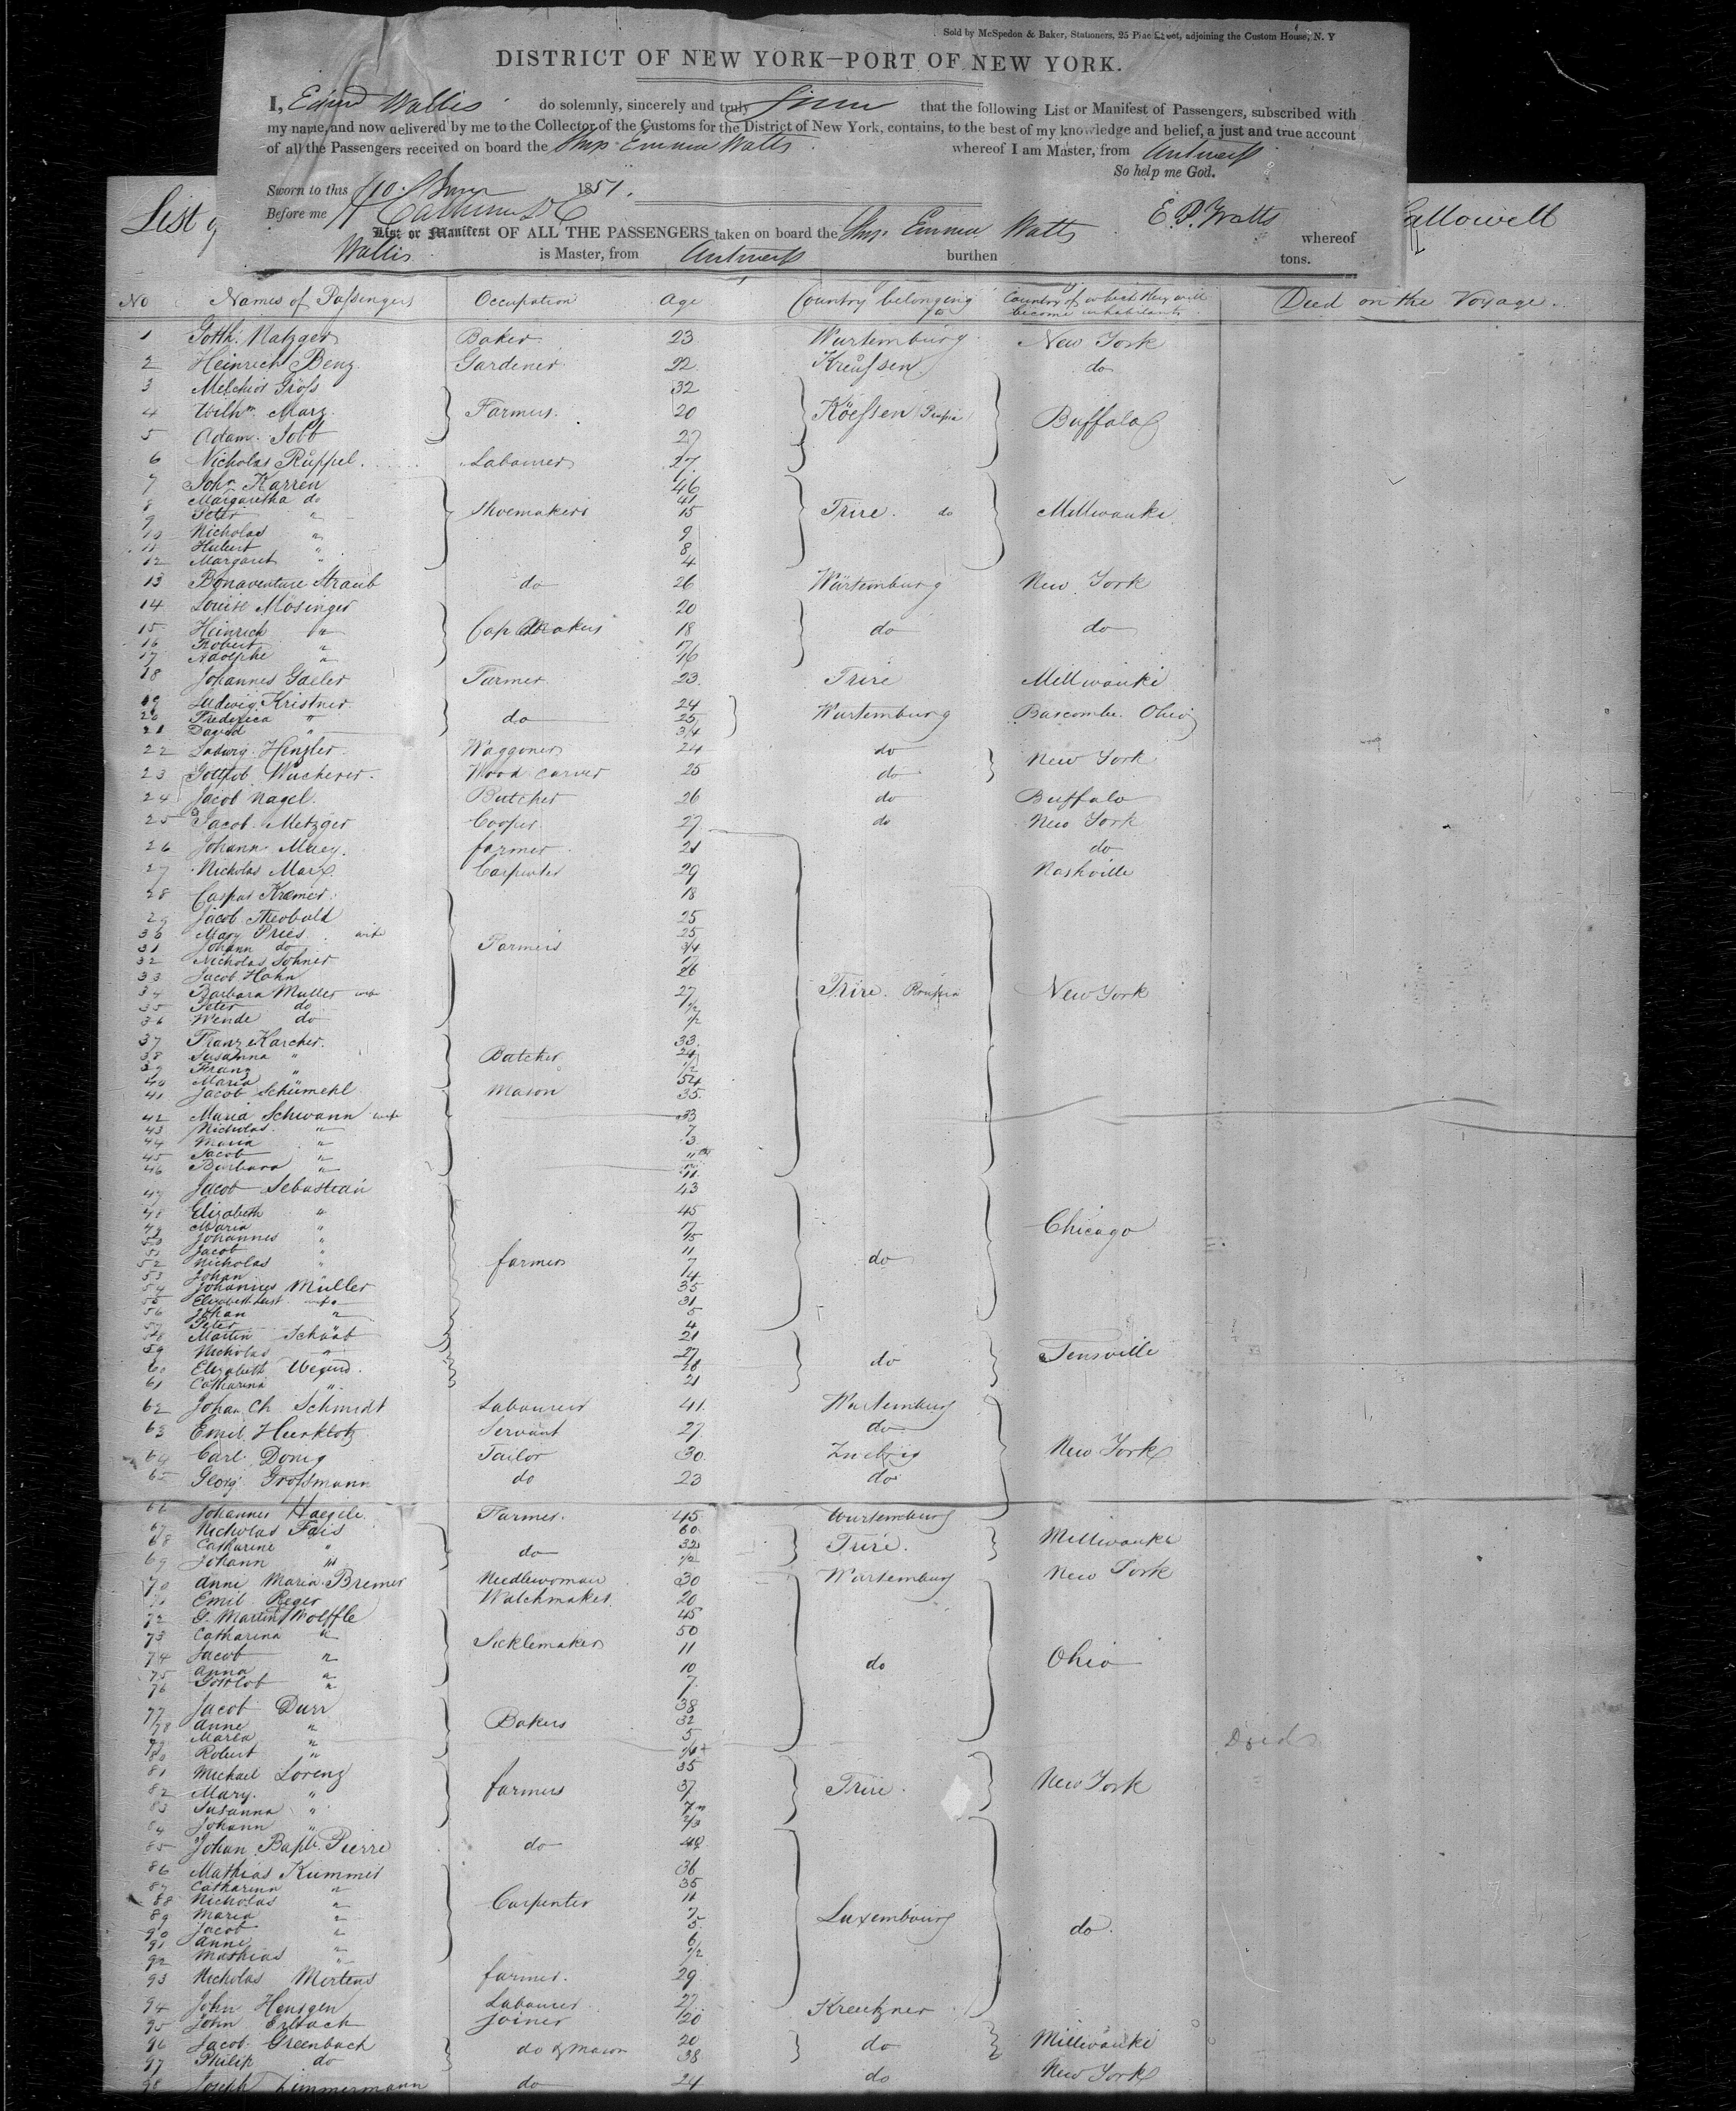 Sold by McSpedon & Baker, Stationers, 25 Pine Street, adjoining the Custom House, N. Y
DISTRICT OF NEW YORK—PORT OF NEW YORK.
I, Edward Wallis do solemnly, sincerely and truly that the following List or Manifest of Passengers, subscribed with
my name, and now delivered by me to the Collector of the Customs for the District of New York, contains, to the best of my knowledge and belief, a just and true account
of all the Passengers received on board the Ship Emma Watts whereof I am Master, from Antwerp
So help me God.
Sworn to this 10 1851.
Before me
E. P. Wallis
List or Manifest OF ALL THE PASSENGERS taken on board the Ship Emma Watts whereof
Wallis is Master, from Antwerp burthen tons.
List of allowell
No Names of Passengers Occupation Age Country belonging to Country of which they will become inhabitants Died on the Voyage.
1 Gotth. Matzger Baker 23 Wurtemburg New York
2 Heinrich Benz Gardener 22 Kreussen do
3 Melchior Gross 32
4 Wilhm. Marz Farmers. 20 Buffalo
5 Adam 27
6 Nicholas Rüppel Labourer 27
7 John Karren 46
8 Margaretha do 41
9 Peter " Shoemakers 15 Trire. do Millwauki
10 Nicholas " 9
11 Hubert " 8
12 Margaret " 4
13 Bonaventure Straub do 26 Würtemburg New York
14 Louise Mösinger 20
15 Heinrich " Cap Makers 18 do do
16 Robert " 17
17 Adolphe " 16
18 Johannes Gaeler Farmer 23 Trire Millwauki
19 Ludwig Kristner 24
20 Frederica " do 25 Wurtemburg Ohio
21 David " 3/4
22 Ludwig Henzler Waggoner 24 do New York
23 Gottlob Wucherer Wood carver 25 do
24 Jacob Nagel Butcher 26 do Buffalo
25 Jacob Metzger Cooper 27 do New York
26 Johann Maey farmer 21 do
27 Nicholas Marx Carpenter 29 Nashville
28 Caspar Kramer 18
29 Jacob Theobald 25
30 Mary Pries wife 25
31 Johann do Farmers 3/4
32 Nicholas Johner 17
33 Jacob Hahn 26
34 Barbara Muller wife 27 Trire. Prussia New York
35 Peter do 1 1/2
36 Wende do 1/2
37 Franz Karcher 33
38 Susanna " Butcher 24
39 Franz " 1/2
40 Maria " 54
41 Jacob Schümehl Mason 35
42 Maria Schwann wife 33
43 Nicholas " 7
44 Maria " 3
45 Jacob "
46 Barbara "
47 Jacob Sebastian 43
48 Elizabeth " 45
49 Maria " 17 Chicago
50 Johannes " 15
51 Jacob " 11
52 Nicholas " farmers 7 do
53 Johan " 14
54 Johannes Müller 35
55 Elizabeth wife 31
56 Johan " 5
57 Peter 4
58 Martin Schaab 21
59 Nicholas " 27
60 Elizabeth 28 do
61 Catharina " 21
62 Johan Ch. Schmidt Labourer 41 Wurtemburg
63 Emil Herklotz Servant 27 do
64 Carl Donig Tailor 30 New York
65 Georg Grossmann do 23 do
66 Johannes Haegele Farmer. 45 Wurtemburg
67 Nicholas Fais 60
68 Catharine " do 32 Trire. Millwauki
69 Johann " 1/2
70 Anne Maria Bremer Needlewoman 30 Wurtemburg New York
71 Emil Reger Watchmaker 20
72 G. Martin Wolffle 45
73 Catharina " 50
74 Jacob " Sicklemaker 11 do Ohio
75 Anna " 10
76 Gottlob " 7
77 Jacob Durr 38
78 Anne " Bakers 32
79 Maria " 5
80 Robert " Died
81 Michael Lorenz 35
82 Mary. " farmers 37 Trire. New York
83 Susanna " 7
84 Johann " 2/3
85 Johan Bapte. Pierre do 40
86 Mathias Kummer 36
87 Catharina " 35
88 Nicholas " Carpenter 11
89 Maria " 7 Luxembourg
90 Jacob " 5 do.
91 Anne " 6
92 Mathias " 1/2
93 Nicholas Mertens farmer. 29
94 John Hensgen Labourer 27 Kreutzner
95 John Erlbach joiner 20
96 Jacob Greenbach do & Mason 20 do Millwauki
97 Philip do 38
98 Joseph Zimmermann do 24 do New York